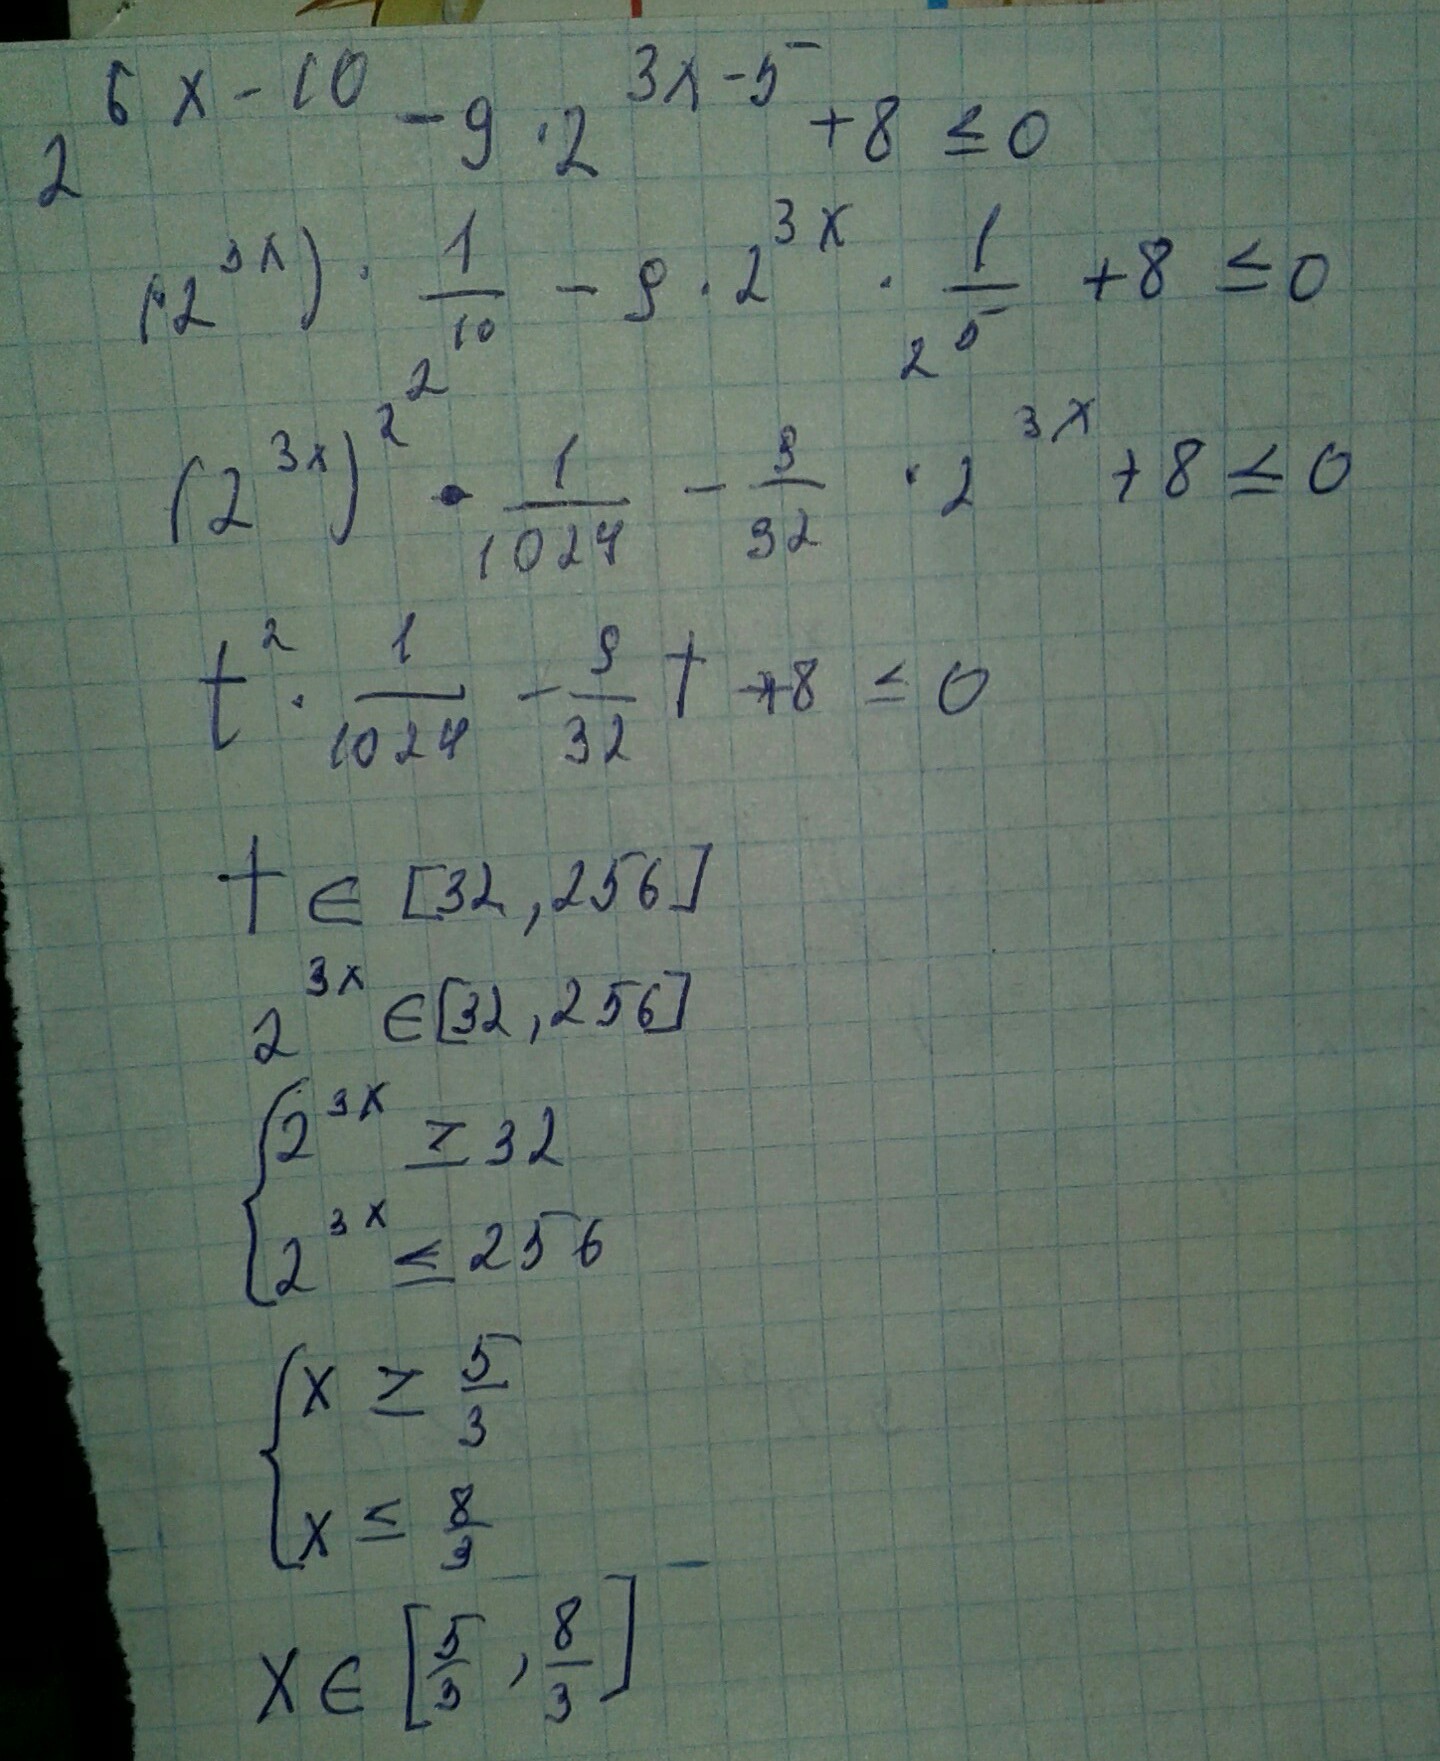 2^{6x-10} - 9 · 2^{3x-5} + 8 ≤ 0
(2^{3x}) · \frac{1}{2^{10}} - 9 · 2^{3x} · \frac{1}{2^5} + 8 ≤ 0
(2^{3x})^2 · \frac{1}{1024} - \frac{9}{32} · 2^{3x} + 8 ≤ 0
t^2 · \frac{1}{1024} - \frac{9}{32} t + 8 ≤ 0
t ∈ [32, 256]
2^{3x} ∈ [32, 256]
{ 2^{3x} ≥ 32
2^{3x} ≤ 256
{ x ≥ \frac{5}{3}
x ≤ \frac{8}{3}
x ∈ [\frac{5}{3}, \frac{8}{3}]